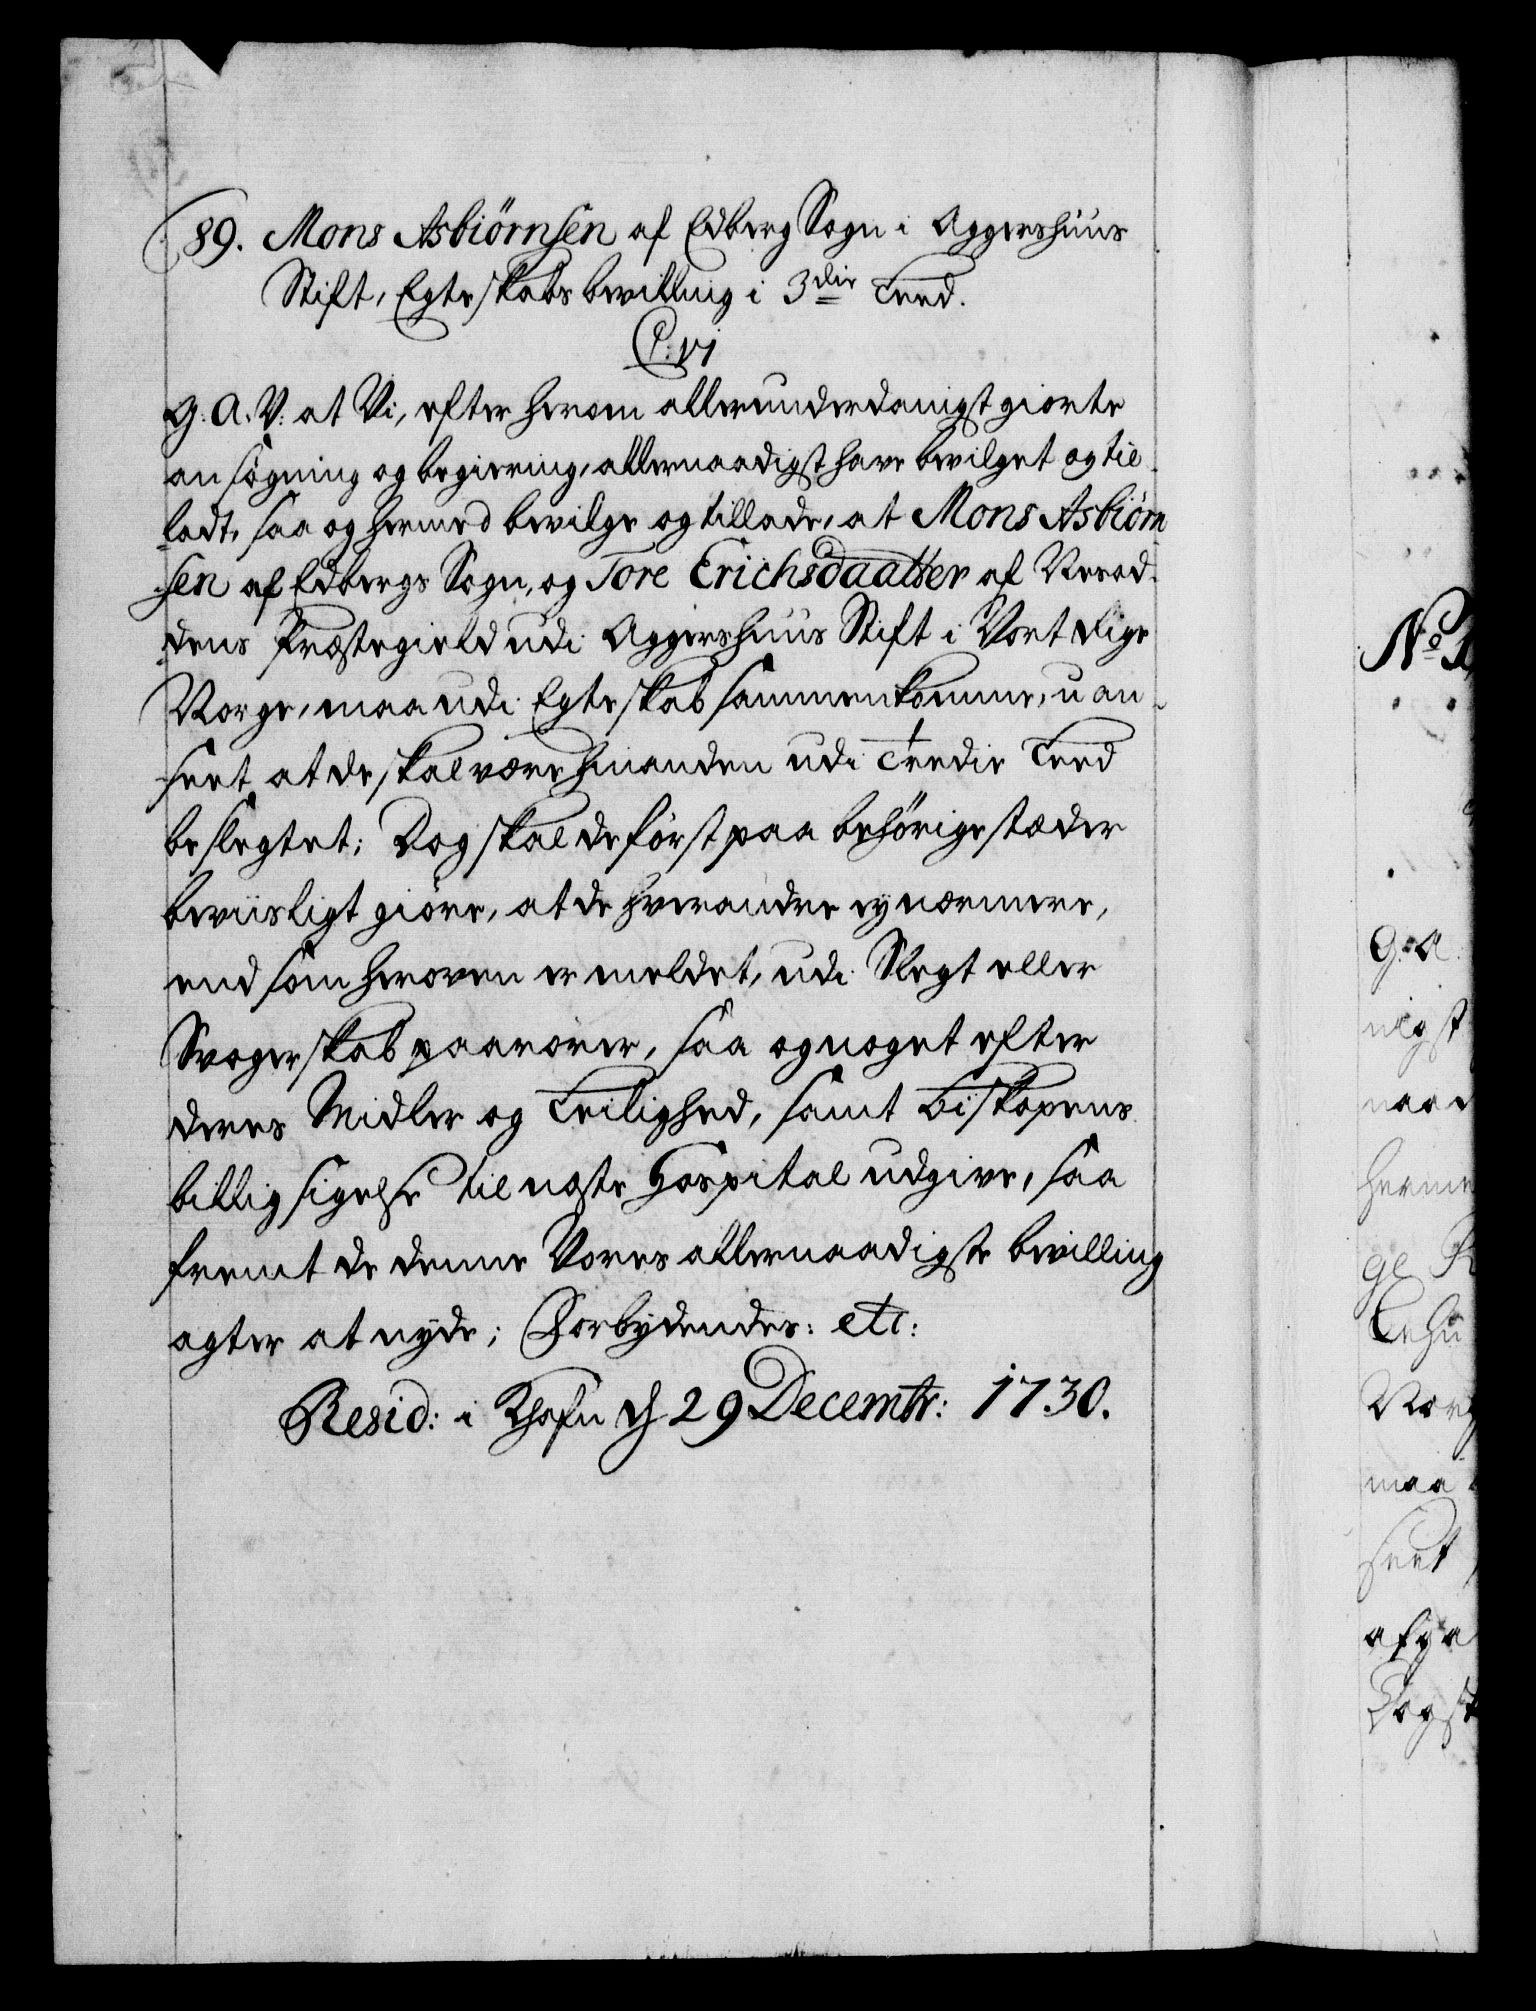 89. Mons Asbiörnsen af Edberg Sogn i Aggershuus
Stift, Egteskabs bevilling i 3die Leed.
C: VI
G. A. V. at Vi, efter herom allerunderdanigst giorte
ansögning og begiering, allernaadigst have bevilget og til-
ladt, saa og hermed bevilge og tillade, at Mons Asbiörn
sen af Edbergs Sogn, og Tore Erichsdaatter af Næsod-
dens Præstegield udi Aggershuus Stift i Vort Rige
Norge, maa udi Egteskab sammenkomme, uan-
seet at de skal være hinanden udi Tredie Leed
beslegtet; Dog skal de först paa behörige stæder
beviisligt giöre, at de hverandre ey nærmere,
end som heroven er meldet, udi Slegt eller
Svogerskab paarörer, saa og noget efter
deres Midler og Leilighed, samt Biskopens
billig sigelse til neste Hospital udgive, saa
fremt de denne Vores allernaadigste bevilling
agter at nyde; Forbydendes: etc:
Resid: i Khafn d 29 Decembr: 1730.
No
G. A.
nigst
naad
herme
ge
Norg
maa
seet
afga
Dog sk